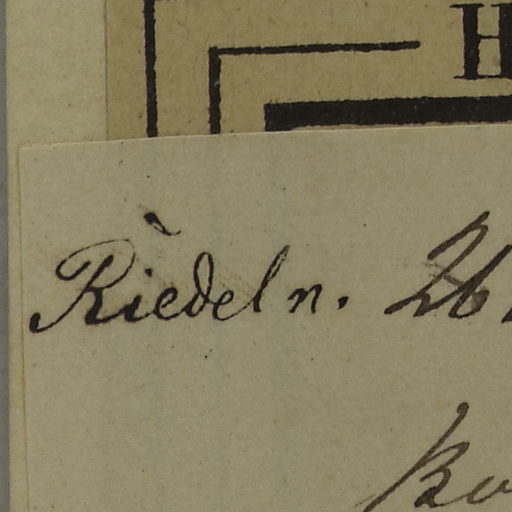 H
Riedel n. 26